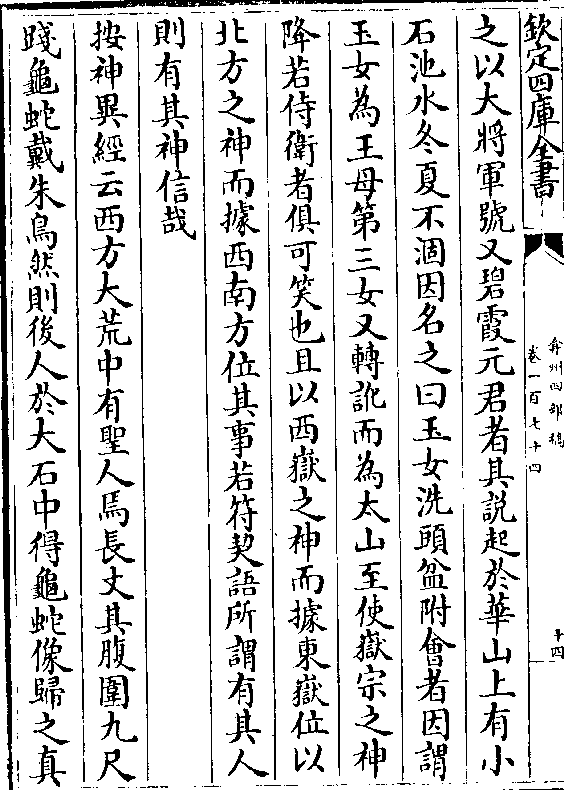 欽定四庫全書
弇州四部稿
卷一百七十四
十四
之以大將軍號又碧霞元君者其説起於華山上有小
石池水冬夏不涸因名之曰玉女洗頭盆附會者因謂
玉女為王母第三女又轉訛而為太山至使嶽宗之神
降若侍衛者俱可笑也且以西嶽之神而據東嶽位以
北方之神而據西南方位其事若符契語所謂有其人
則有其神信哉
按神異經云西方大荒中有聖人焉長丈其腹圍九尺
踐龜蛇戴朱鳥然則後人於大石中得龜蛇像歸之真